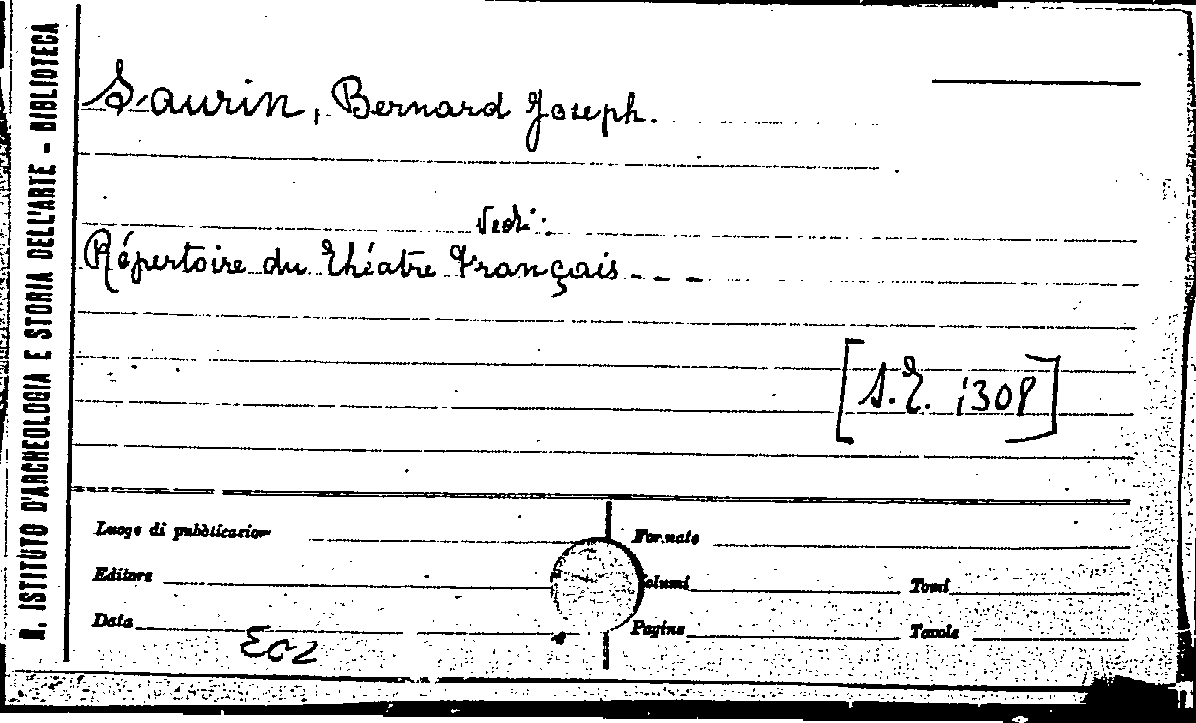 R. ISTITUTO D'ARCHEOLOGIA E STORIA DELL'ARTE - BIBLIOTECA
Saurin, Bernard Joseph.
Vedi:
Répertoire du Théatre Français - - -
[S.T. 130P]
Luogo di pubblicazione
Formato
Editore
Volumi
Tomi
Data
Pagine
Tavole